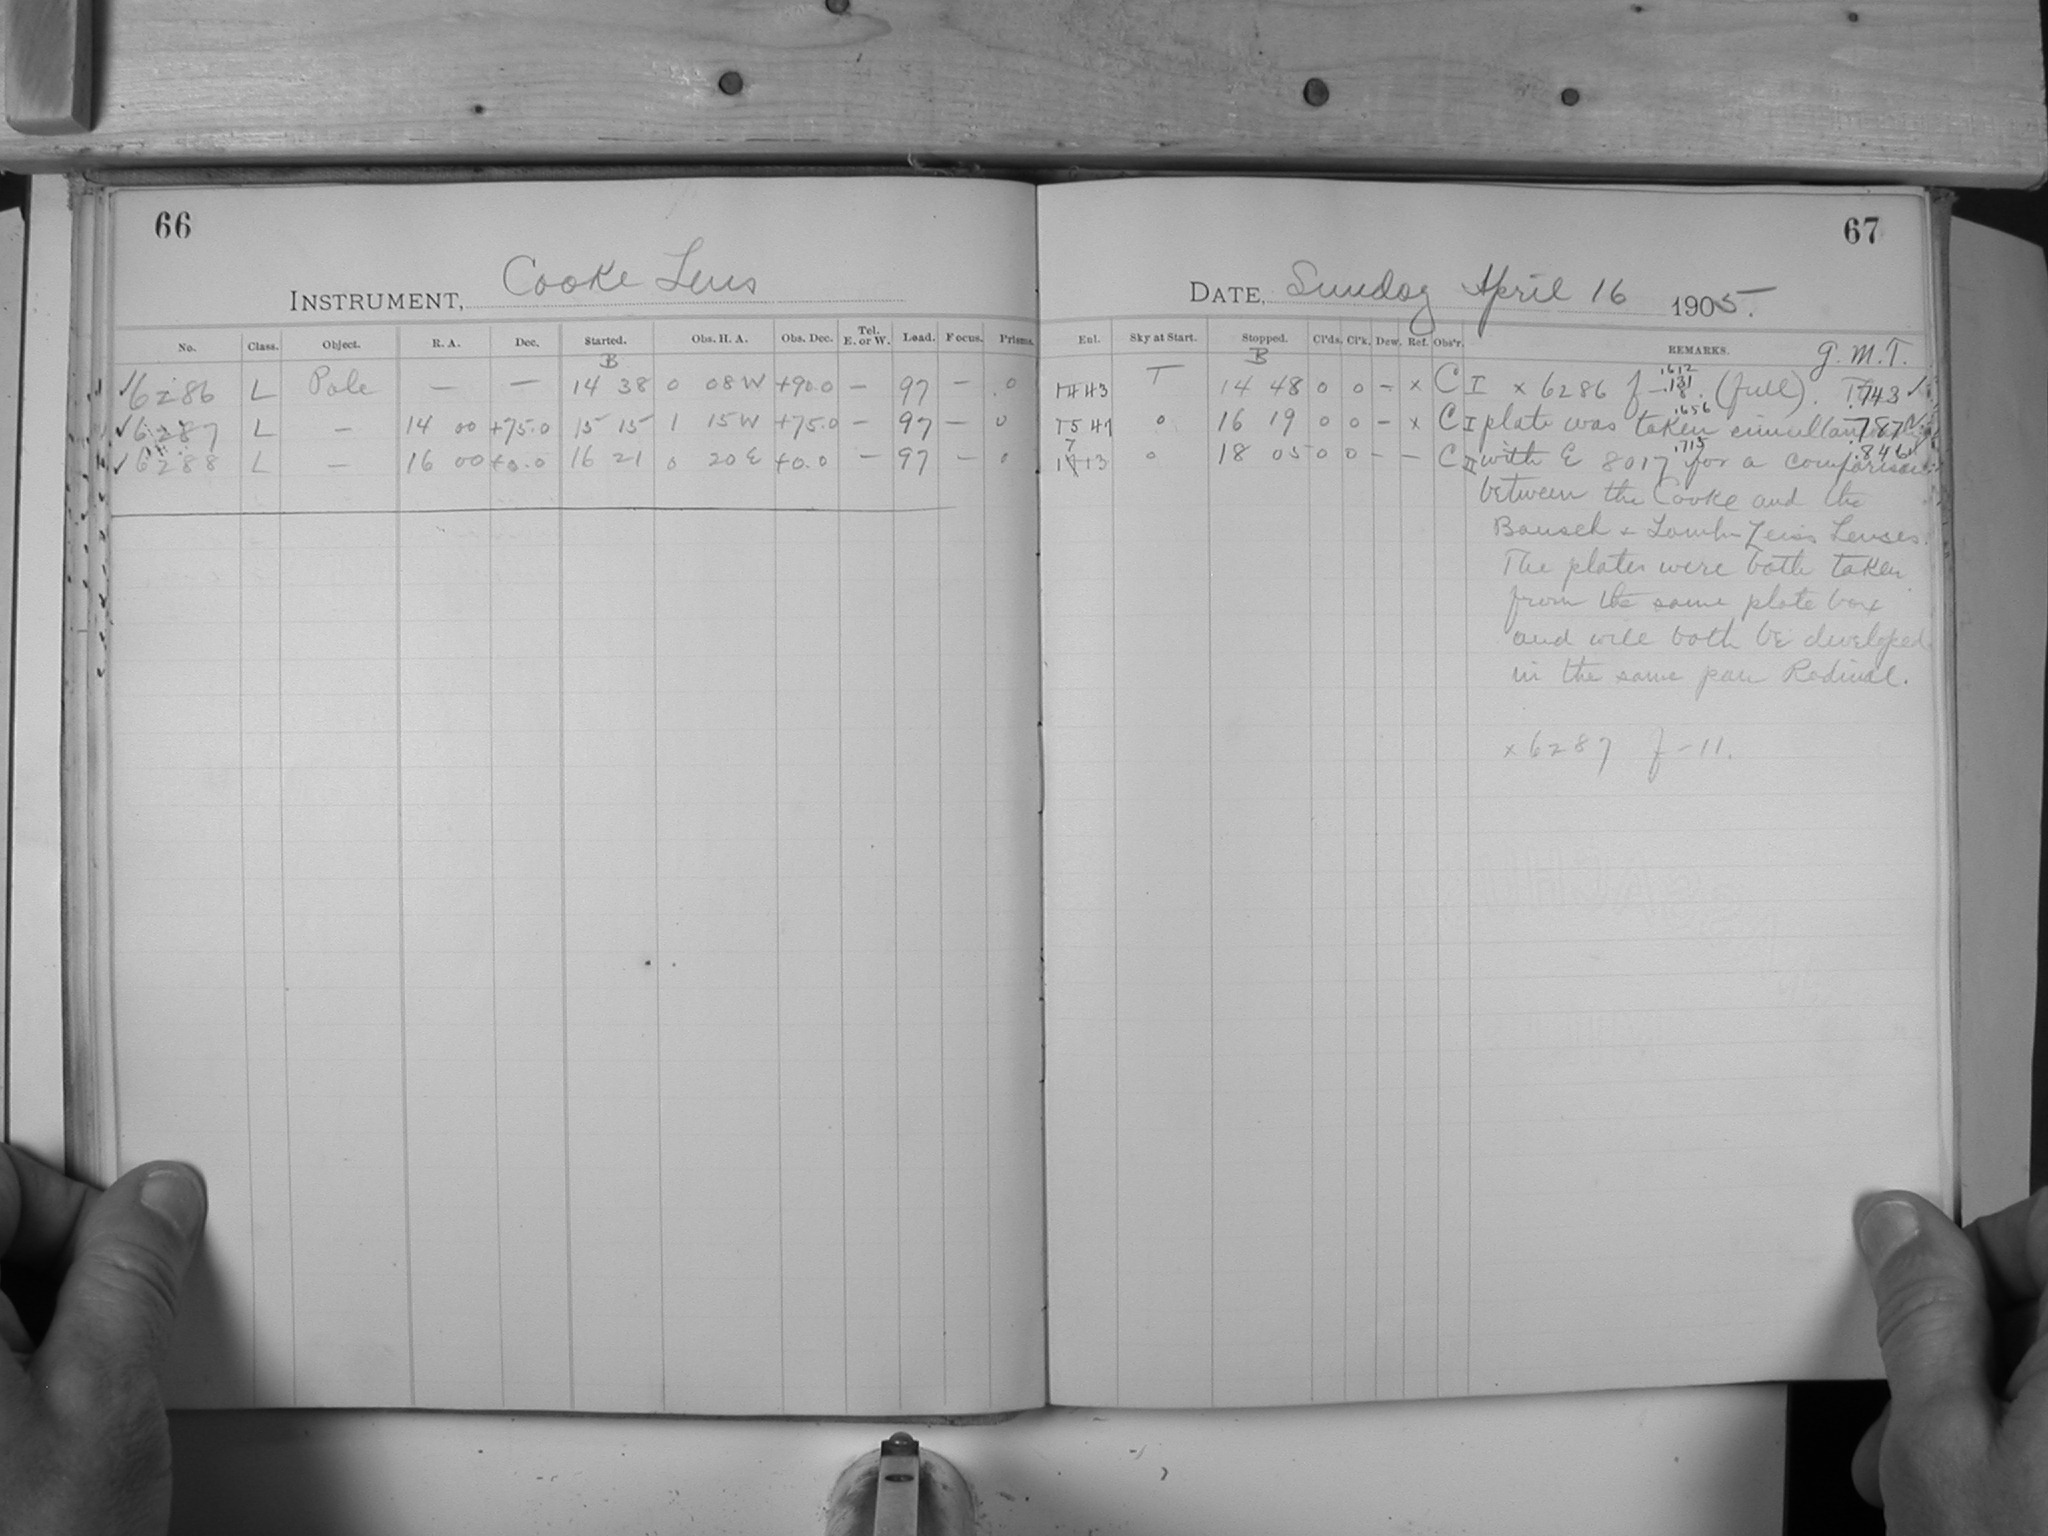 66
INSTRUMENT, Cooke Lens
No. Class. Object. R. A. Dec. Started. Obs. H. A. Obs. Dec. Tel. E. or W. Load. Focus. Prisms.
B
6286 L Pole — — 14 38 0 08 W +90.0 — 97 — 0
6287 L — 14 00 +75.0 15 15 1 15 W +75.0 — 97 — 0
6288 L — 16 00 +0.0 16 21 0 20 E +0.0 — 97 — 0
67
DATE, Sunday April 16 1905.
Enl. Sky at Start. Stopped. Cl'ds. Cl'k. Dew. Ref. Obs'r. REMARKS. G. M. T.
B
1443 T 14 48 0 0 - x C I x 6286 f - (full). .743
.1612
1541 0 16 19 0 0 - x C I plate was taken .787
.1656
17 13 0 18 05 0 0 - - C II with E 8017 for a comparison .846
.1715
between the Cooke and the
Bausch + Lomb-Zeiss Lenses.
The plates were both taken
from the same plate box
and will both be developed
in the same pan Rodinal.
x 6287 f - 11.